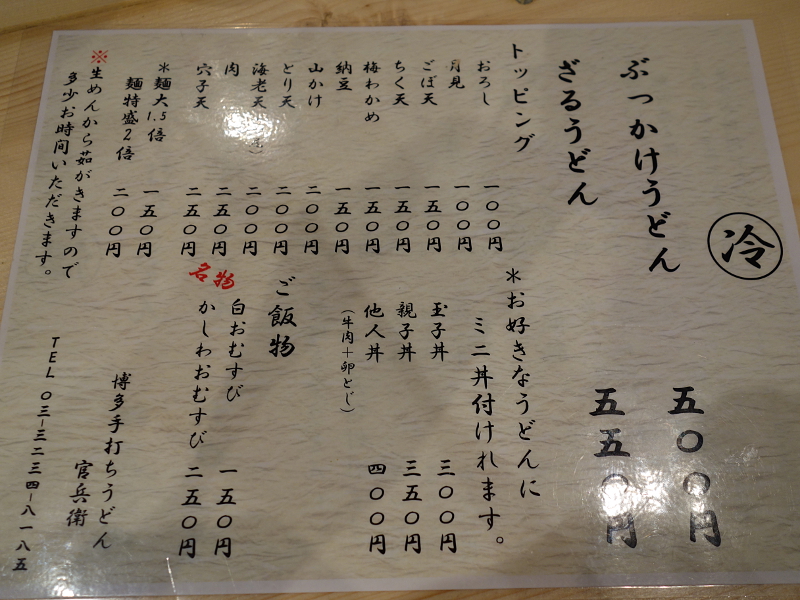 冷
ぶっかけうどん 五〇〇円
ざるうどん 五五〇円
トッピング
おろし 一〇〇円
月見 一〇〇円
ごぼ天 一五〇円
ちく天 一五〇円
梅わかめ 一五〇円
納豆 一五〇円
山かけ 二〇〇円
とり天 二〇〇円
海老天 二〇〇円
肉 二五〇円
穴子天 二五〇円
*麺大1.5倍 一五〇円
麺特盛2倍 二〇〇円
※生めんから茹がきますので
多少お時間いただきます。
*お好きなうどんに
ミニ丼付けれます。
玉子丼 三〇〇円
親子丼 三五〇円
他人丼 四〇〇円
(牛肉+卵とじ)
ご飯物
白おむすび 一五〇円
名物
かしわおむすび 二五〇円
博多手打ちうどん
官兵衛
TEL 〇三-三二三四-八一八五